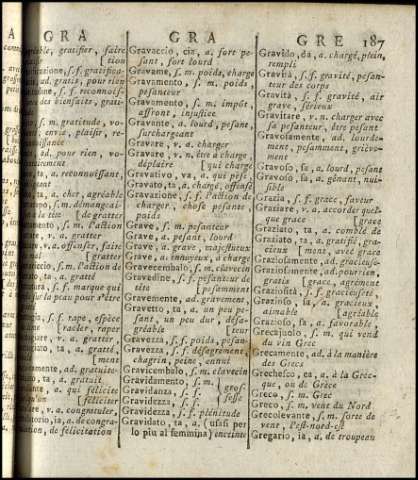 GRA
GRA
GRE 187
gratifier, faire
[tion
s. f. gratifica-
ad. gratis, pour rien
s. f. reconnois-
des bienfaits, grati-
s. m. gratitude, vo-
envie, plaisir, re-
ad. pour rien, vo-
ta, a. reconnoissant,
ta, a. cher, agréable
s. m. démangeai-
la tête [de gratter
s. m. gratter
v. a. gratter
v. a. offenser, faire
s. m. l'action de
ta, a. gratté
s. f. marque qui
sur la peau pour s'être
s. f. rape, espèce
[racler, raper
v. a. gratter
ta, a. gratté,
[ment
ad. gratuite-
ta, a. gratuit
a. qui félicite
[féliciter
v. a. congratuler,
ia, a. de congra-
de félicitation
Gravaccio, cia, a. fort pe-
sant, fort lourd
Gravame, s. m. poids, charge
Gravamento, s. m.
pesanteur
Gravamento, s. m. impôt,
affront, injustice
Gravante, a. lourd, pesant,
surchargeant
Gravare, v. a. charger
Gravare, v. n. être à charge,
déplaire [qui charge
Gravativo, va, a. qui pese
Gravato, ta, a. chargé, offensé
Gravazione, s. f. l'action de
charger, chose pesante,
poids
Grave, s. m. pesanteur
Grave, a. pesant, lourd
Grave, a. grave, majestueux
Grave, a. ennuyeux, à charge
Gravecembalo, s. m. clavecin
Gravedine, s. f. pesanteur de
tête [pesamment
Gravemente, ad. grávement,
Gravetto, ta, a. un peu pe-
sant, un peu dur, désa-
gréable [teur
Gravezza, s. f. poids, pesan-
Gravezza, s. f. désagrement,
chagrin, peine, ennui
Gravicembalo, s. m. clavecin
Gravidamento, s. m. }
Gravidanza, s. f. } gros-
Gravidezza, s. f. } sesse
Gravidezza, s. f. plénitude
Gravidato, ta, a. (usasi per
lo piu al femmina) enceinte
Gravido, da, a. chargé, plein,
rempli
Gravità, s. f. gravité, pesan-
teur des corps
Gravità, s. f. gravité, air
grave, sérieux
Gravitare, v. n. charger avec
sa pesanteur, être pesant
Gravosamente, ad. lourde-
ment, pesamment, griève-
ment
Gravoso, sa, a. lourd, pesant
Gravoso, sa, a. gênant, nui-
sible
Grazia, s. f. grace, faveur
Graziare, v. a. accorder quel-
que grace [grace
Graziato, ta, a. comblé de
Graziato, ta, a. gratifié, gra-
cieux [ment, avec grace
Graziosamente, ad. gracieuse-
Graziosamente, ad. pour rien,
gratis [grace, agrément
Graziosità, s. f. gracieuseté,
Grazioso, sa, a. gracieux,
aimable [agréable
Grazioso, sa, a. favorable,
Grecajuolo, s. m. qui vend
du vin Grec
Grecamente, ad. à la manière
des Grecs
Grechesco, ca, a. à la Grec-
que, ou de Grèce
Greco, s. m. Grec
Greco, s. m. vent du Nord
Grecolevante, s. m. sorte de
vent, l'est-nord-est
Gregario, ia, a. de troupeau